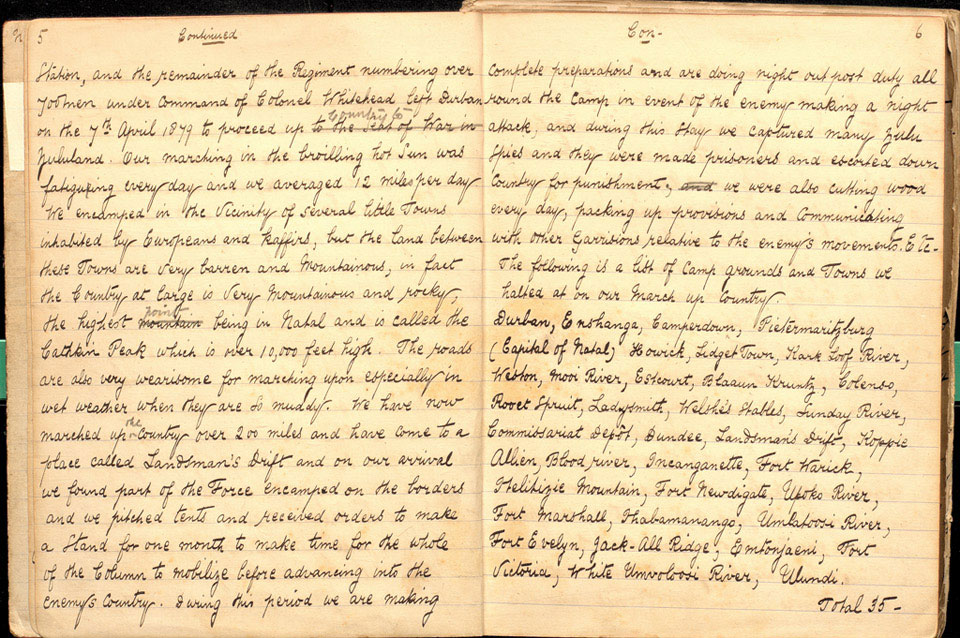 5 Continued
Station, and the remainder of the Regiment numbering over
700 men under Command of Colonel Whitehead left Durban
on the 7th April 1879 to proceed up Country to to the Seat of War in
Zululand. Our marching in the broilling hot Sun was
fatigueing every day and we averaged 12 miles per day
We encamped in the Vicinity of Several little Towns
inhabited by Europeans and Kaffirs, but the land between
these Towns are Very barren and Mountainous, in fact
the Country at large is Very Mountainous and rocky,
the highest point mountain being in Natal and is called the
Cathkin Peak which is over 10,000 feet high. The roads
are also very wearisome for marching upon especially in
wet weather when they are so muddy. We have now
marched up the Country over 200 miles and have come to a
place called Landsman's Drift and on our arrival
we found part of the Force encamped on the borders
and we pitched tents and received orders to make
a Stand for one month to make time for the whole
of the Column to mobilize before advancing into the
enemy's Country. During this period we are making
Con- 6
complete preparations and are doing night out post duty all
round the Camp in event of the enemy making a night
attack, and during this stay we captured many Zulu
Spies and they were made prisoners and escorted down
Country for punishment, and we were also cutting wood
every day, packing up provisions and Communicating
with other Garrisions relative to the enemy's movements. Etc-
The following is a list of Camp grounds and Towns we
halted at on our March up Country.
Durban, Enshanga, Camperdown, Pietermaritzburg
(Capital of Natal) Howick, Lidget Town, Kark Loof River,
Weston, Mooi River, Estcourt, Blaaun Kruntz, Colenso,
Rovet Spruit, Ladysmith, Welshe's Stables, Sunday River,
Commissariat Depôt, Dundee, Landsman's Drift, Koppie
Allien, Blood river, Incanganette, Fort Warick,
Itelitizie Mountain, Fort Newdigate, Upoko River,
Fort Marshall, Ithabamanango, Umlatoosi River,
Fort Evelyn, Jack-All Ridge, Emtonjaeni, Fort
Victoria, White Umvoloosi River, Ulundi.
Total 35-